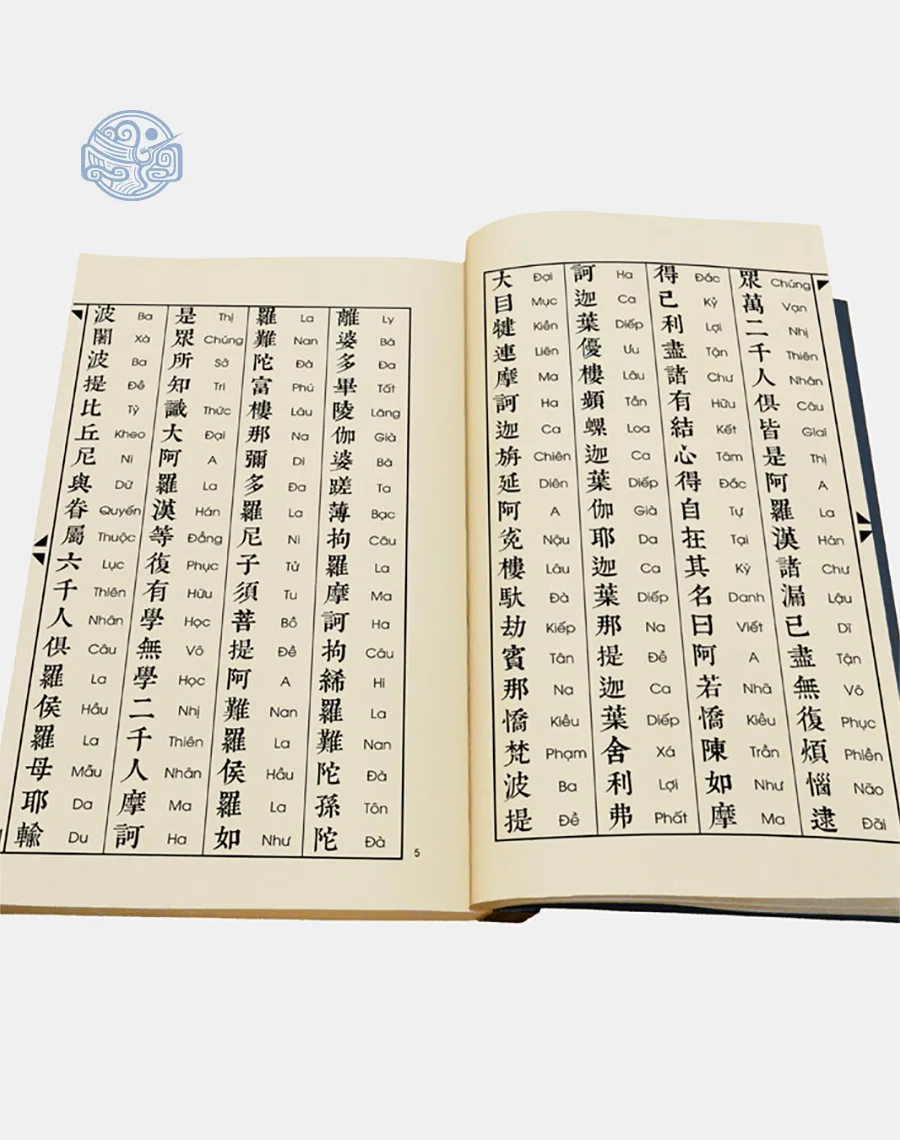 眾萬二千人俱皆是阿羅漢諸漏已盡無復煩惱逮
Chúng Vạn Nhị Thiên Nhân Câu Giai Thị A La Hán Chư Lậu Dĩ Tận Vô Phục Phiền Não Đãi
得己利盡諸有結心得自在其名曰阿若憍陳如摩
Đắc Kỷ Lợi Tận Chư Hữu Kết Tâm Đắc Tự Tại Kỳ Danh Viết A Nhã Kiều Trần Như Ma
訶迦葉優樓頻螺迦葉伽耶迦葉那提迦葉舍利弗
Ha Ca Diếp Ưu Lâu Tần Loa Ca Diếp Già Da Ca Diếp Na Đề Ca Diếp Xá Lợi Phất
大目犍連摩訶迦旃延阿㝹樓馱劫賓那憍梵波提
Đại Mục Kiền Liên Ma Ha Ca Chiên Diên A Nậu Lâu Đà Kiếp Tân Na Kiều Phạm Ba Đề
離婆多畢陵伽婆蹉薄拘羅摩訶拘絺羅難陀孫陀
Ly Bà Đa Tất Lăng Già Bà Ta Bạc Câu La Ma Ha Câu Hi La Nan Đà Tôn Đà
羅難陀富樓那彌多羅尼子須菩提阿難羅侯羅如
La Nan Đà Phú Lâu Na Di Đa La Ni Tử Tu Bồ Đề A Nan La Hầu La Như
是眾所知識大阿羅漢等復有學無學二千人摩訶
Thị Chúng Sở Tri Thức Đại A La Hán Đẳng Phục Hữu Học Vô Học Nhị Thiên Nhân Ma Ha
波闍波提比丘尼與眷屬六千人俱羅侯羅母耶輸
Ba Xà Ba Đề Tỳ Kheo Ni Dữ Quyến Thuộc Lục Thiên Nhân Câu La Hầu La Mẫu Da Du
5